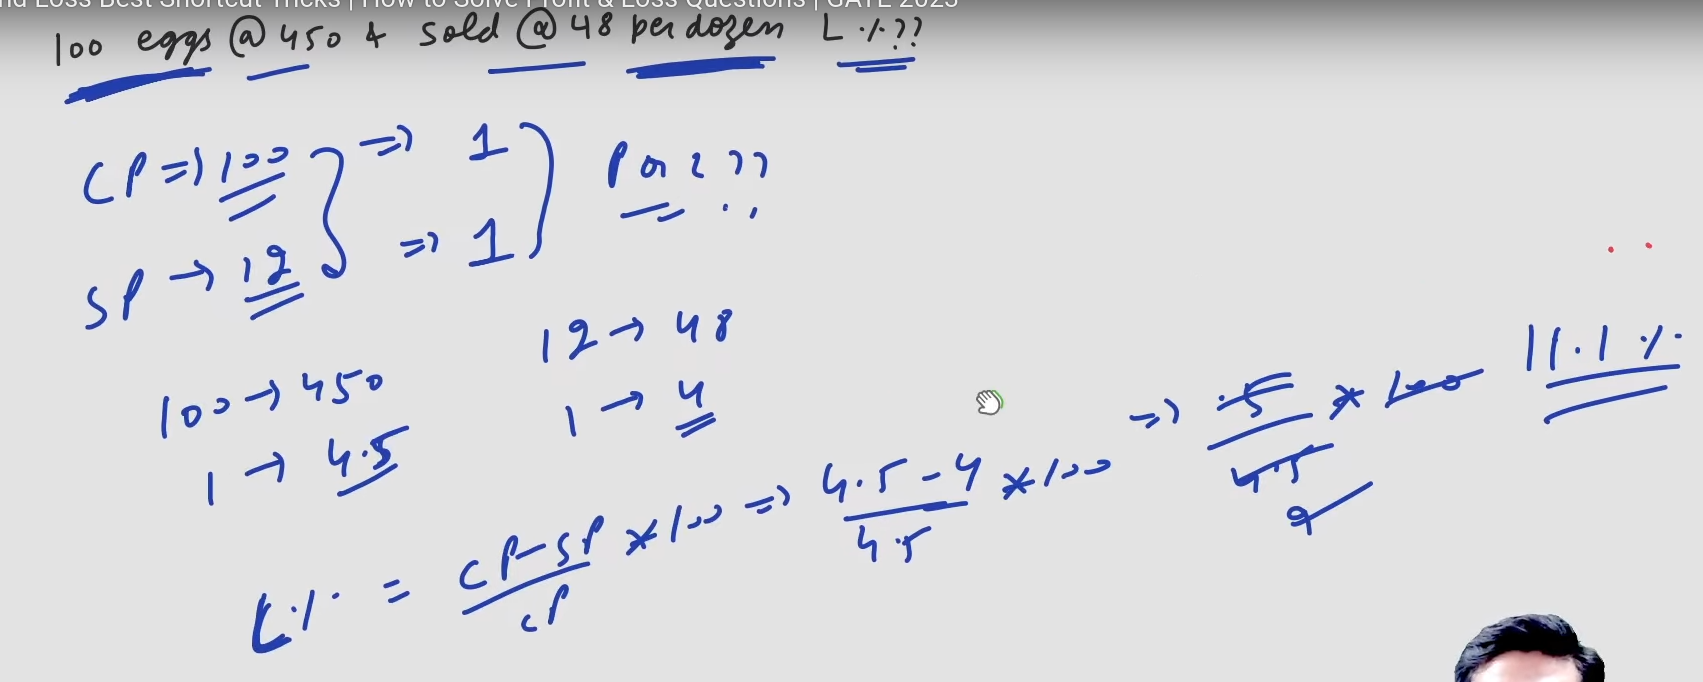 nd Loss Best Shortcut Tricks | How to Solve Profit & Loss Questions | GATE 2025
100 eggs @ 450 & sold @ 48 per dozen L % ??
CP => 100 => 1
P or L ??
SP → 12 => 1
12 → 48
100 → 450
1 → 4
1 → 4.5
L% = CP-SP / CP * 100 => 4.5-4 / 4.5 * 100 => .5 / 4.5 * 100 11.1 %
9